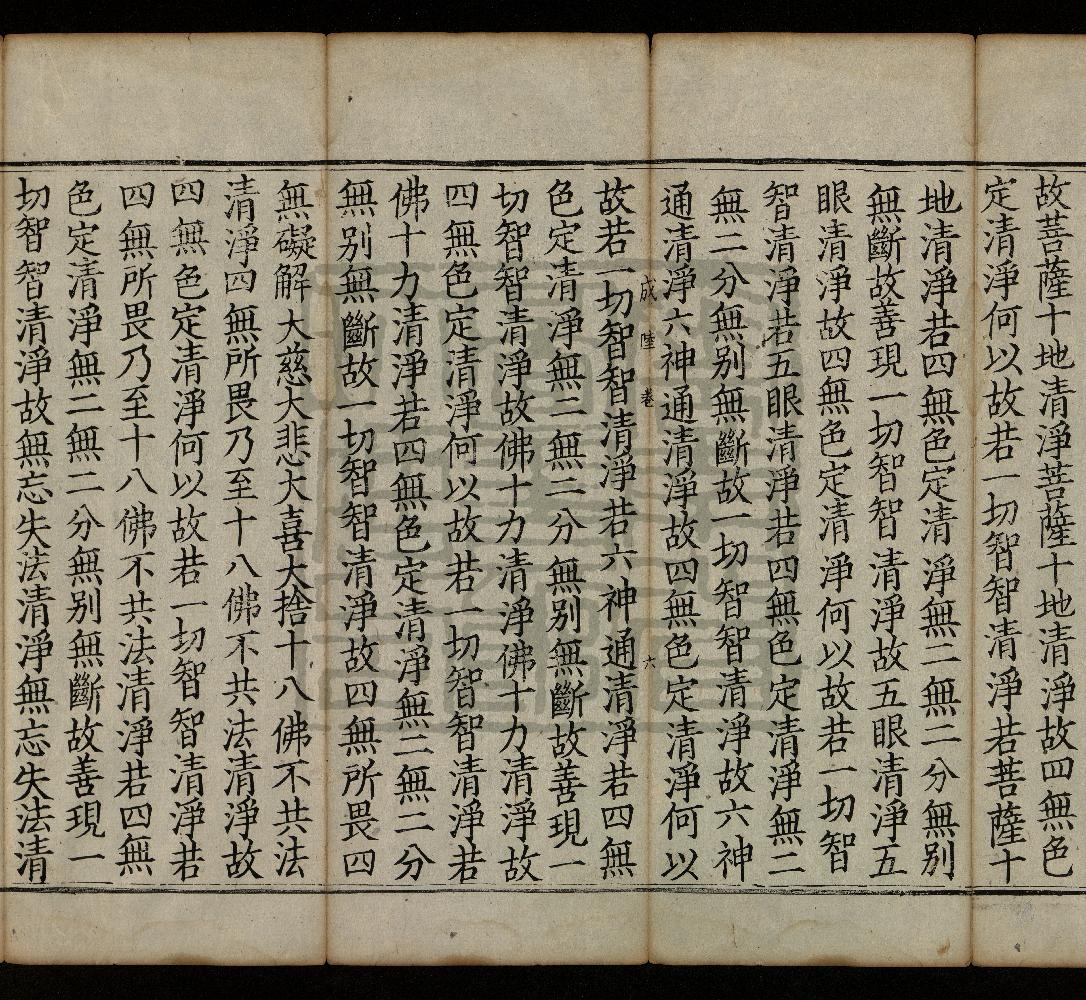 故菩薩十地清淨菩薩十地清淨故四無色
定清淨何以故若一切智智清淨若菩薩十
地清淨若四無色定清淨無二無二分無別
無斷故善現一切智智清淨故五眼清淨五
眼清淨故四無色定清淨何以故若一切智
智清淨若五眼清淨若四無色定清淨無二
無二分無別無斷故一切智智清淨故六神
通清淨六神通清淨故四無色定清淨何以
成 陸 卷 六
故若一切智智清淨若六神通清淨若四無
色定清淨無二無二分無別無斷故善現一
切智智清淨故佛十力清淨佛十力清淨故
四無色定清淨何以故若一切智智清淨若
佛十力清淨若四無色定清淨無二無二分
無別無斷故一切智智清淨故四無所畏四
無礙解大慈大悲大喜大捨十八佛不共法
清淨四無所畏乃至十八佛不共法清淨故
四無色定清淨何以故若一切智智清淨若
四無所畏乃至十八佛不共法清淨若四無
色定清淨無二無二分無別無斷故善現一
切智智清淨故無忘失法清淨無忘失法清